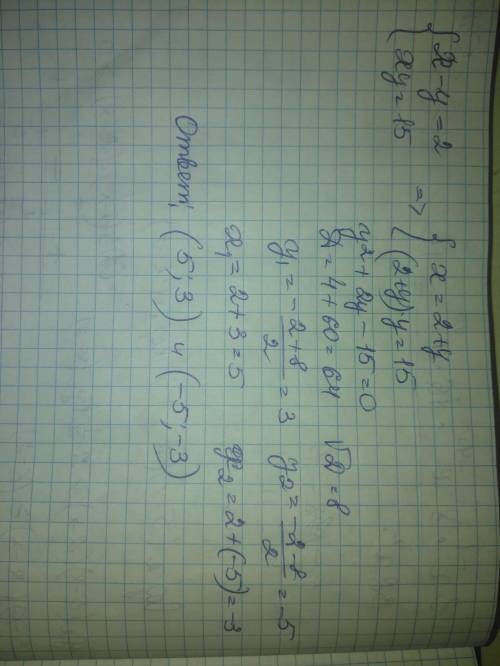 { x - y = 2 => { x = 2+y
{ xy = 15 { (2+y)y = 15
y² + 2y - 15 = 0
D = 4 + 60 = 64 √D = 8
y₁ = (-2+8)/2 = 3 y₂ = (-2-8)/2 = -5
x₁ = 2+3 = 5 x₂ = 2+(-5) = -3
Ответ: (5; 3) и (-5; -3)